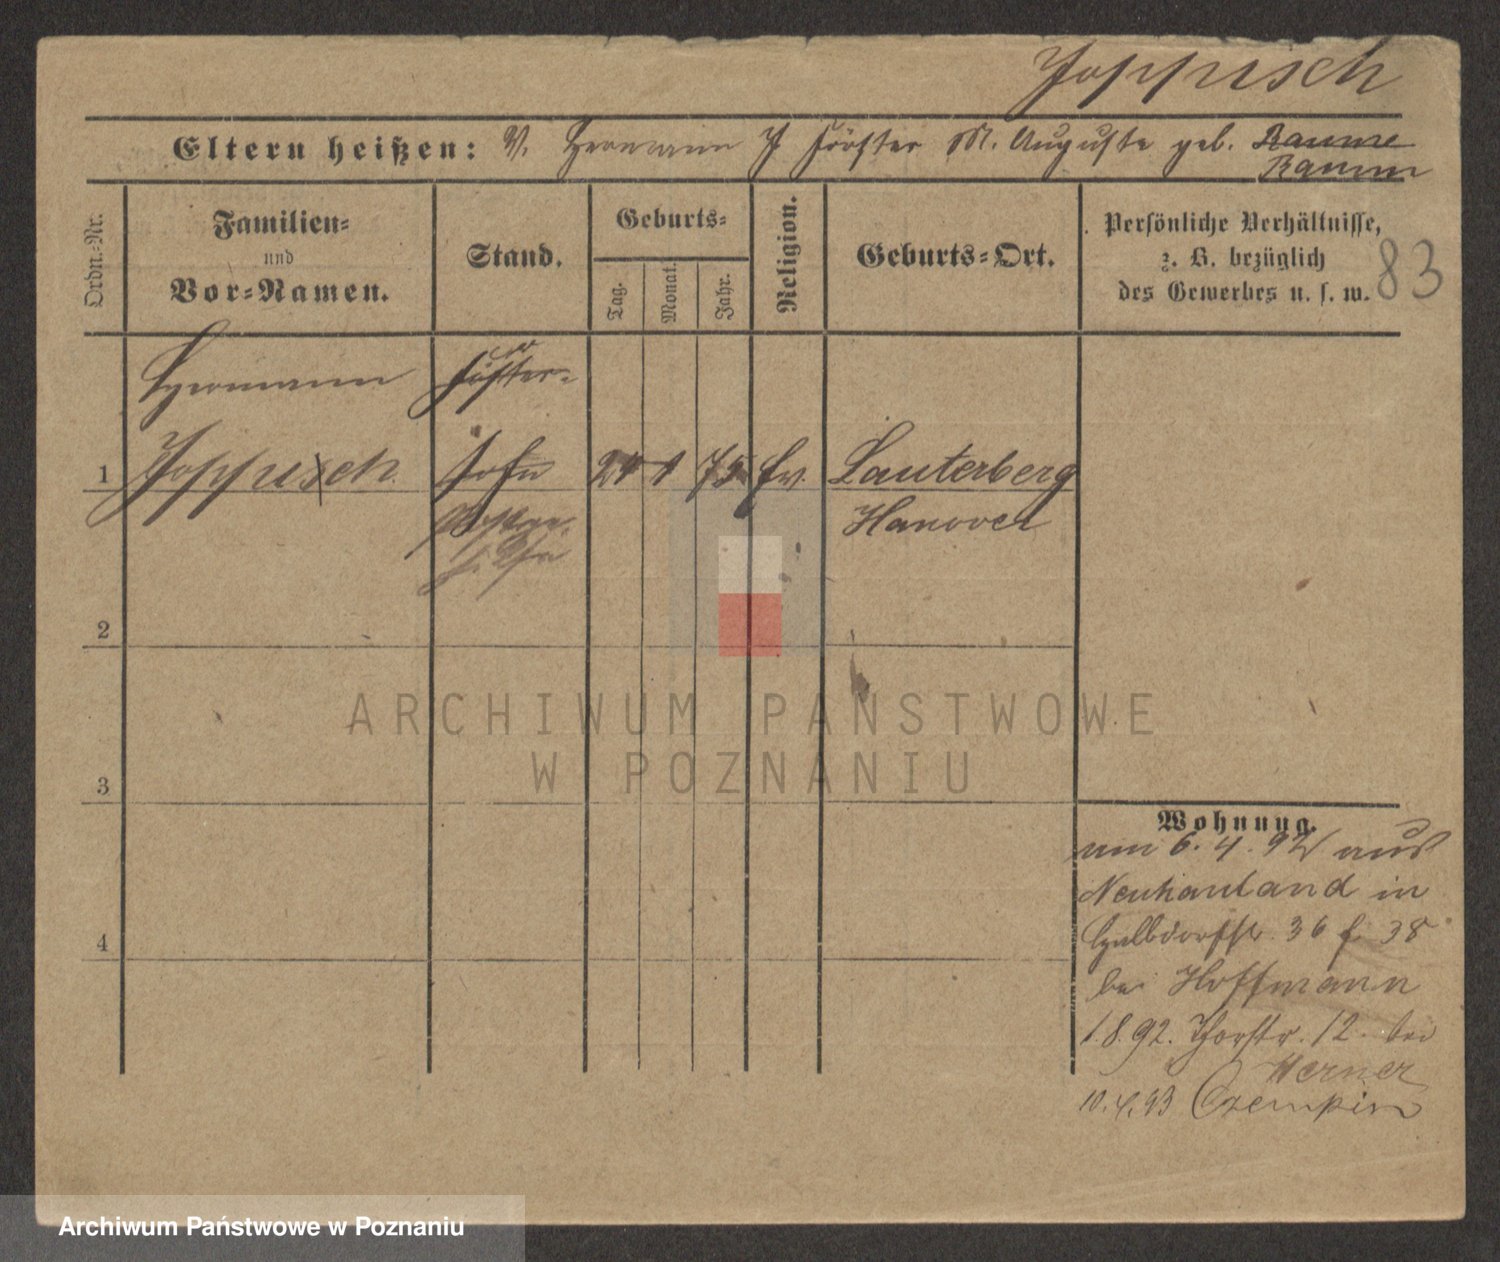 Joppisch
Eltern heißen: V. Hermann J Förster M. Auguste geb. Raume
Ramm
Ordn.-Nr.
Familien-
und
Vor-Namen.
Stand.
Geburts-
Tag.
Monat.
Jahr.
Religion.
Geburts-Ort.
Persönliche Verhältnisse,
z. B. bezüglich
des Gewerbes u. s. w.
83
Hermann
Förster-
1 Joppisch Sohn 21 1 75 ev. Lauterberg
Hanover
2
3
4
Wohnung.
am 6. 4. 92 aus
Neukauland in
Halbdorfstr. 36 / 38
bei Hoffmann
1.8.92. Thorstr. 12 bei
Werner
10.4.93 Czempin
ARCHIWUM PAŃSTWOWE
W POZNANIU
Archiwum Państwowe w Poznaniu